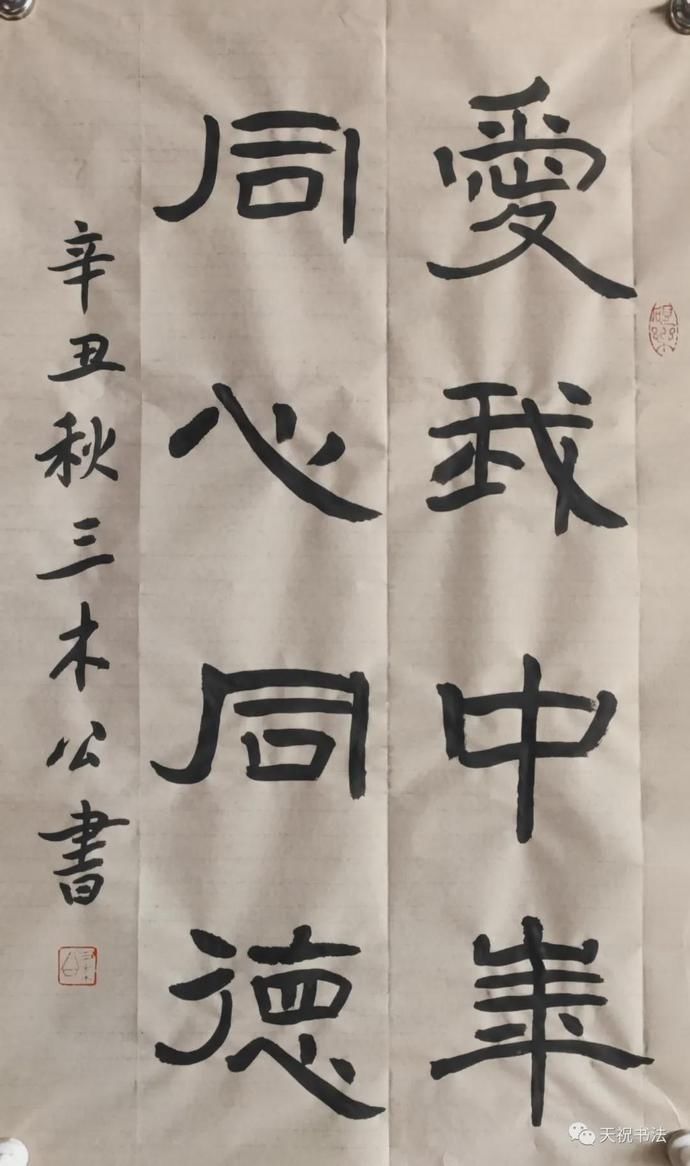 愛我中華
同心同德
辛丑秋三木公書
三木公
天祝书法